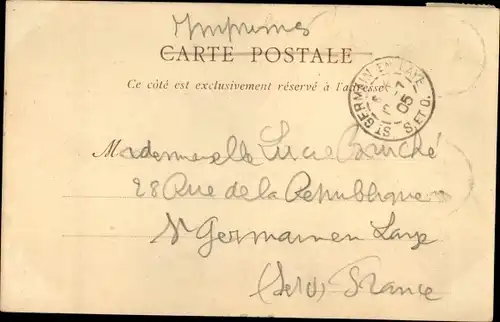 Imprimés
CARTE POSTALE
Ce côté est exclusivement réservé à l'adresse
ST GERMAIN-EN-LAYE
05
S. ET O.
Mademoiselle Lucie
28 Rue de la Republique
St Germain en Laye
France